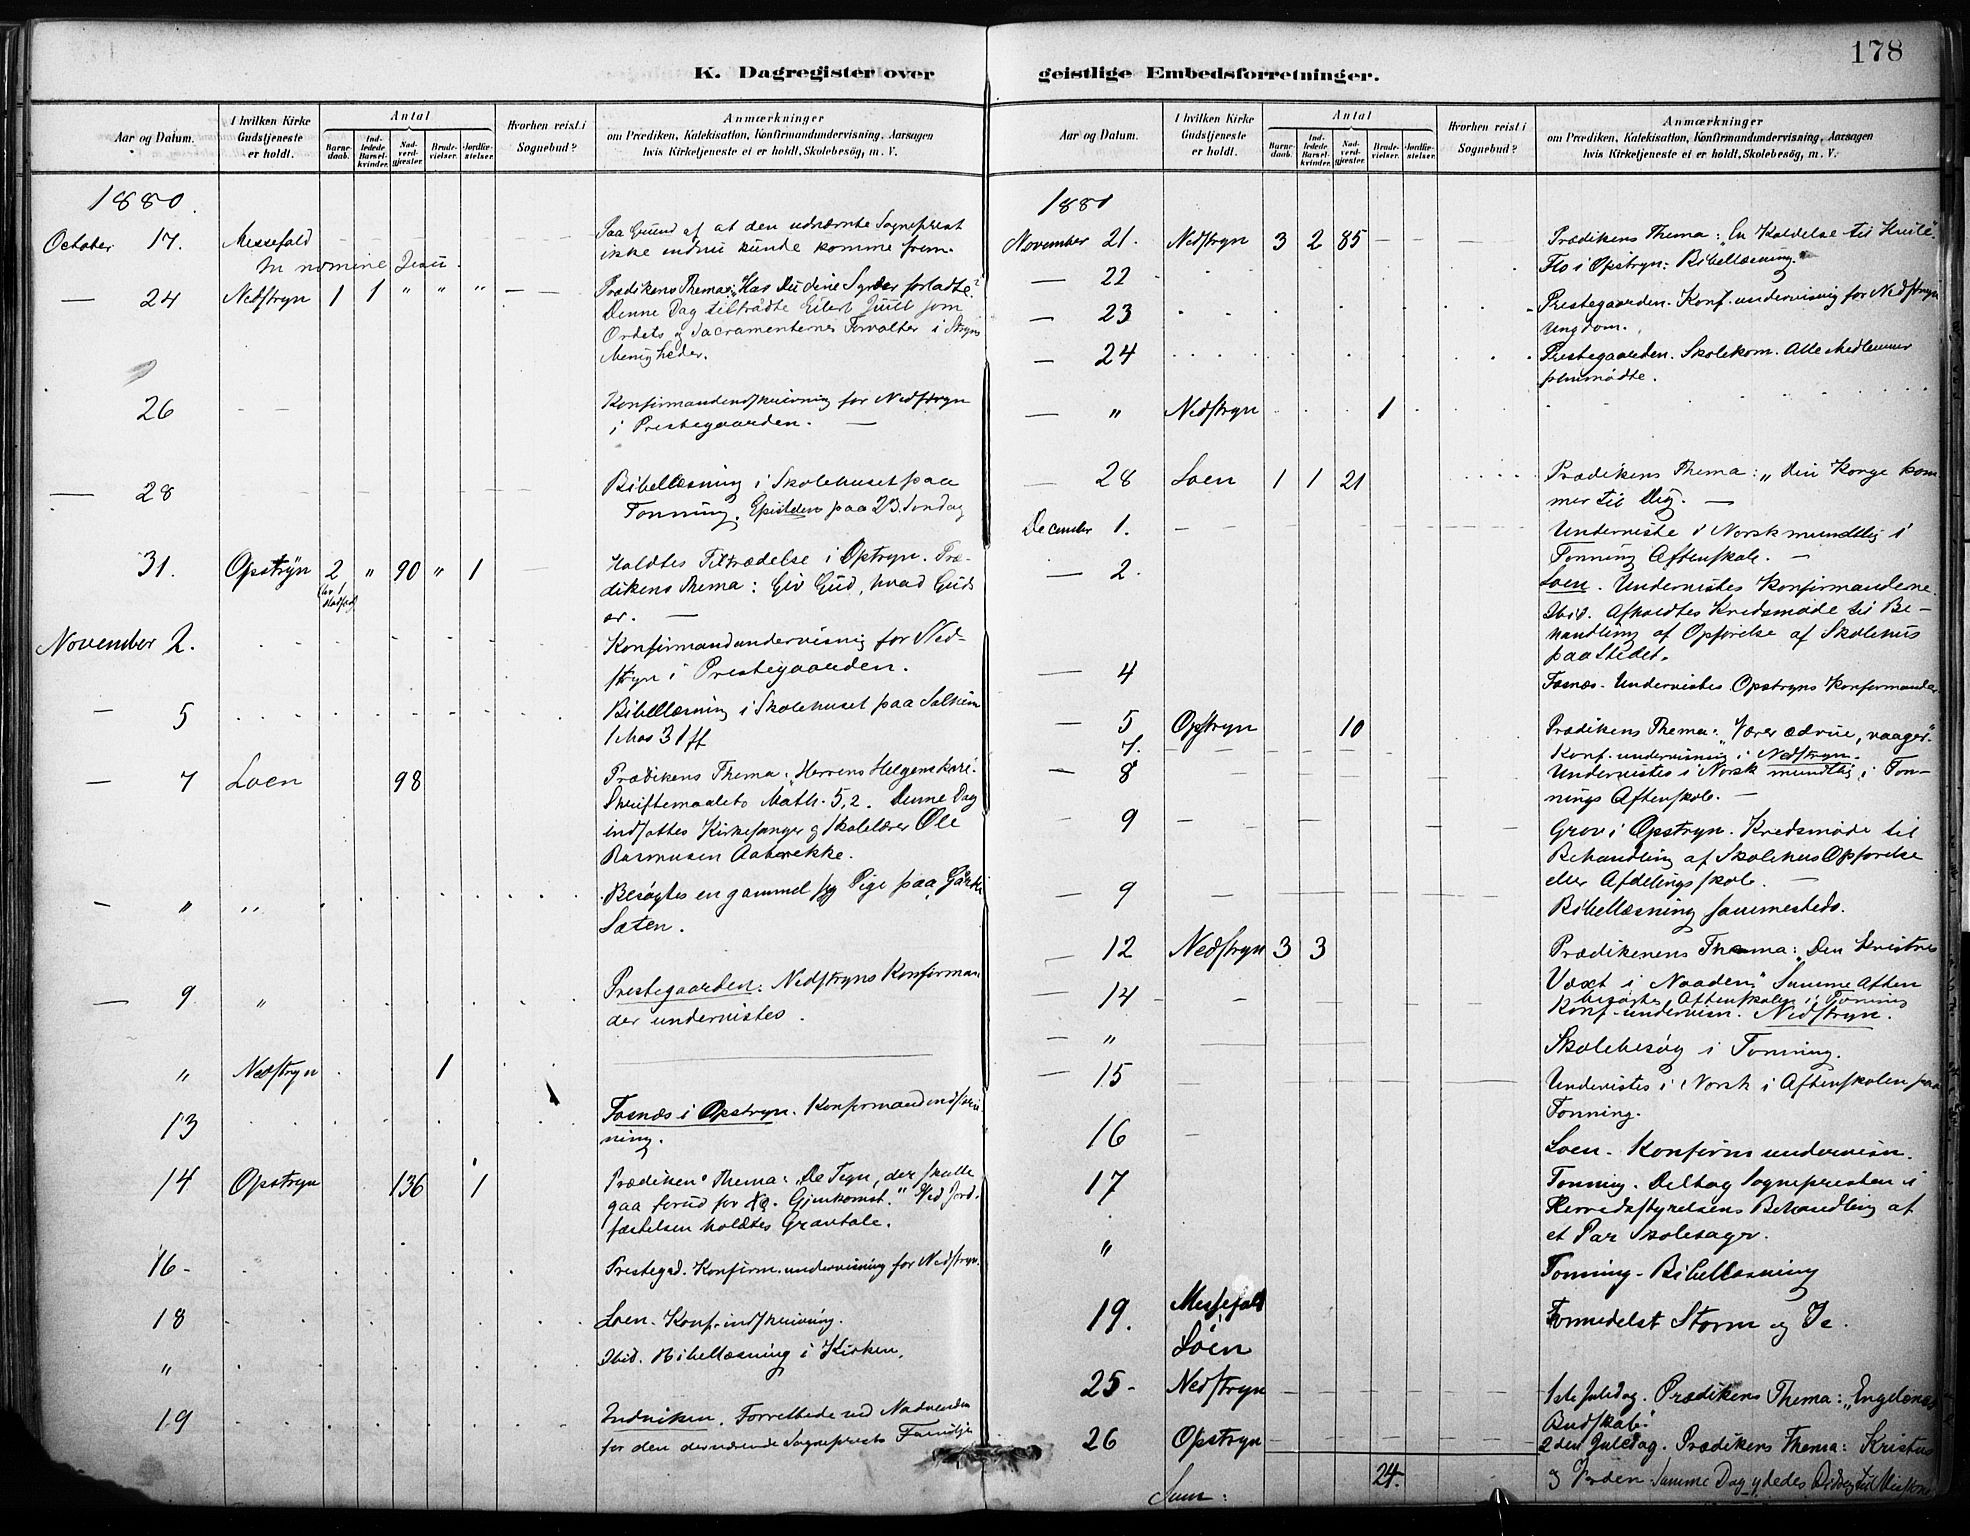 178
K. Dagregister over
geistlige Embedsforretninger.
Aar og Datum.
I hvilken Kirke Gudstjeneste er holdt.
Antal
Barnedaab.
Indledede Barselkvinder.
Nadverdgjester.
Brudevielser.
Jordfæstelser.
Hvorhen reist i Sognebud?
Anmærkninger
om Prædiken, Katekisation, Konfirmandundervisning, Aarsagen
hvis Kirketjeneste ei er holdt, Skolebesøg, m. V.
1880.
October 17. Messefald Paa Grund af at den udnævnte Sogneprest
ikke endnu kunde komme frem.
In nomine Jesu.
— 24 Nedstryn 1 1 " " " Prædikens Thema: „Har Du dine Synder forladte?
Denne Dag tiltrådte Eilert Juul som
Ordets og Sacramenternes Forvalter i Stryns
Menigheder.
26 Konfirmandindskrivning for Nedstryn
i Prestegaarden. —
— 28 Bibellæsning i Skolehuset paa
Tonning. Epistelen paa 23. Søndag
31. Opstryn 2 " 90 " 1 Holdtes Tiltrædelse i Opstryn. Præ-
dikens Thema: Giv Gud, hvad Guds
er. —
November 2. Konfirmandundervisning for Ned-
stryn i Prestegaarden.
— 5 Bibellæsning i Skolehuset paa Solheim
1 Mos 3 1 ff
— 7 Loen 98 Prædikens Thema: „Herrens Helgenskare".
Skriftemaalets Math. 5,2. Denne Dag
indsattes Kirkesanger og Skolelærer Ole
Rasmusen Aabrekke.
— " " Besøgtes en gammel syg Pige paa
Sæten.
— 9 " Prestegaarden. Nedstryns Konfirman
der undervistes.
" Nedstryn 1
13 Fosnæs i Opstryn. Konfirmandindskriv
ning.
14 Opstryn 136 1 Prædikens Thema: „De Tegn, der skulle
gaa forud for Xr. Gjenkomst." Ved Jord-
fæstelsen holdtes Gravtale.
16 - Prestegd. Konfirm. undervisning for Nedstryn.
18 Loen. Konfr. indskrivning.
" Ibid. Bibellæsning i Kirken.
19 Indviken. Forrettede ved Nadverden
for den derværende Sogneprests Familje
Aar og Datum.
I hvilken Kirke Gudstjeneste er holdt.
Antal
Barnedaab.
Indledede Barselkvinder.
Nadverdgjester.
Brudevielser.
Jordfæstelser.
Hvorhen reist i Sognebud?
Anmærkninger
om Prædiken, Katekisation, Konfirmandundervisning, Aarsagen
hvis Kirketjeneste ei er holdt, Skolebesøg, m. V.
1880
November 21. Nedstryn 3 2 85 Prædikens Thema: „En Kaldelse til Hvile".
— 22 Flo i Opstryn: Bibellæsning.
— 23 Prestegaarden. Konf. undervisnig for Nedstryn
Ungdom.
— 24 Prestegaarden. Skolekom. Alle Medlemmer
fremmødte.
— " Nedstryn 1
— 28 Loen 1 1 21 Prædikens Thema: „Din Konge kom
mer til Dig. —
December 1. Underviste i Norsk mundtlig i
Tonning Aftenskole. —
— 2. Loen. Undervistes Konfirmanderne.
Ibid. Afholdtes Kredsmøde til Be-
handling af Opførelse af Skolehus
paa Stedet.
— 4 Fosnæs. Undervistes Opstryns Konfirmander
— 5 Opstryn 10 Prædikens Thema: „Værer ædrue, vaager".
7. Konf. undervisning i Nedstryn.
— 8 Undervistes i Norsk mundtlig i Ton-
nings Aftenskole. —
— 9 Grov i Opstryn. Kredsmøde til
Behandling af Skolehus Opførelse
eller Afdelings skole. —
— 9 Bibellæsning sammesteds.
— 12 Nedstryn 3 3 Prædikenens Thema: „Den Kristnes
Væxt i Naaden". Samme Aften
besøgtes Aftenskolen i Tonning
— 14 Konf-undervisn. Nedstryn.
— " Skolebesøg i Tonning.
— 15 Undervistes i Norsk i Aftenskolen paa
Tonning.
16 Loen. Konfirms undervisn.
17 Tonning. Deltog Sognepresten i
Herredsstyrelsens Behandling af
et Par Skolesager.
" Tonning. Bibellæsning
19. Messefald Loën Formedelst Storm og Is.
25 - Nedstryn 1ste Juledag. Prædikens Thema: „Englenes
Budskab".
26 Opstryn 2den Juledag. Prædikens Thema: Kristus
og Verden. Samme Dag ydedes Bidrag til Missionen
Sum: 24.